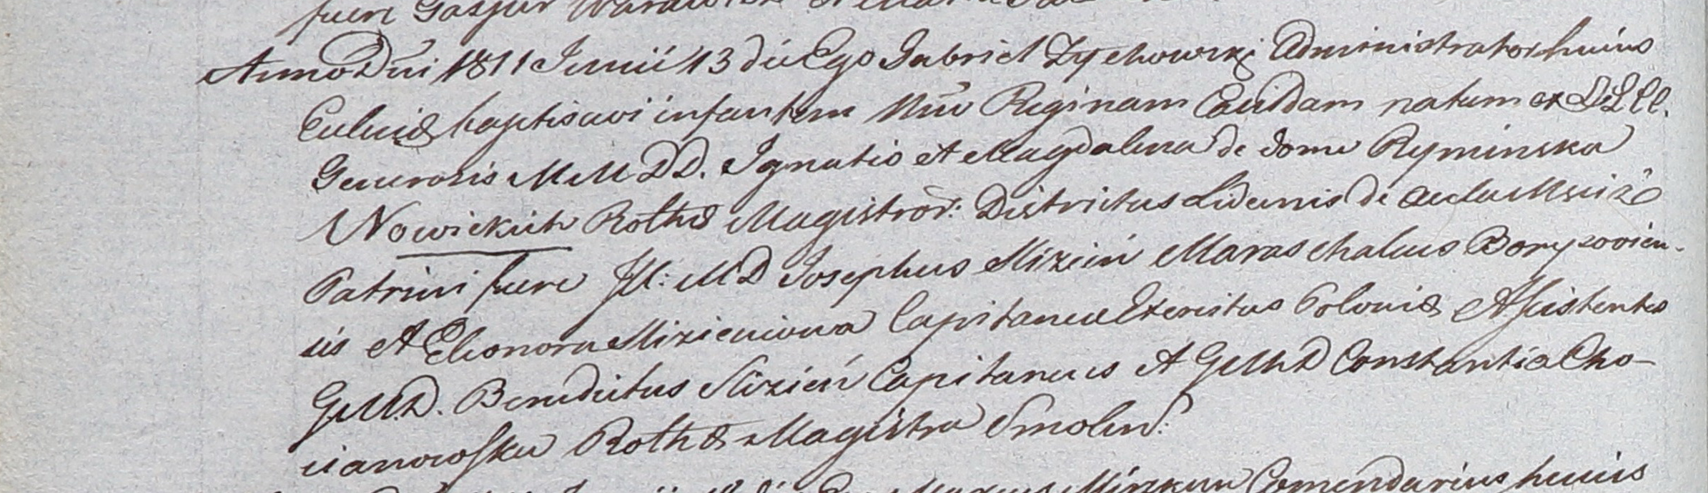 fuere Gaspar
Anno Dni 1811 Junii 13 die Ego Gabriel Zychowski Administrator huius
Eclesiæ baptisavi infantem Nne Reginam Candidam natam ex LL. CC.
Generosis M M D D. Ignatio et Magdalena de domo Ryminska
Nowickich Rothæ Magistror: Districtus Lidensis de aula Mscizo
Patrini fuere Ill: M D Josephus Slizień Maraschalcus Boryzovien-
sis et Eleonora Slizieniowa Capitanea Exercitus Poloniæ Assistentes
G M D. Benedictus Slizień Capitaneus et G M D Constantia Cho-
cianowska Rothæ Magistra Smolens:
Junii Ego Comendarius huius